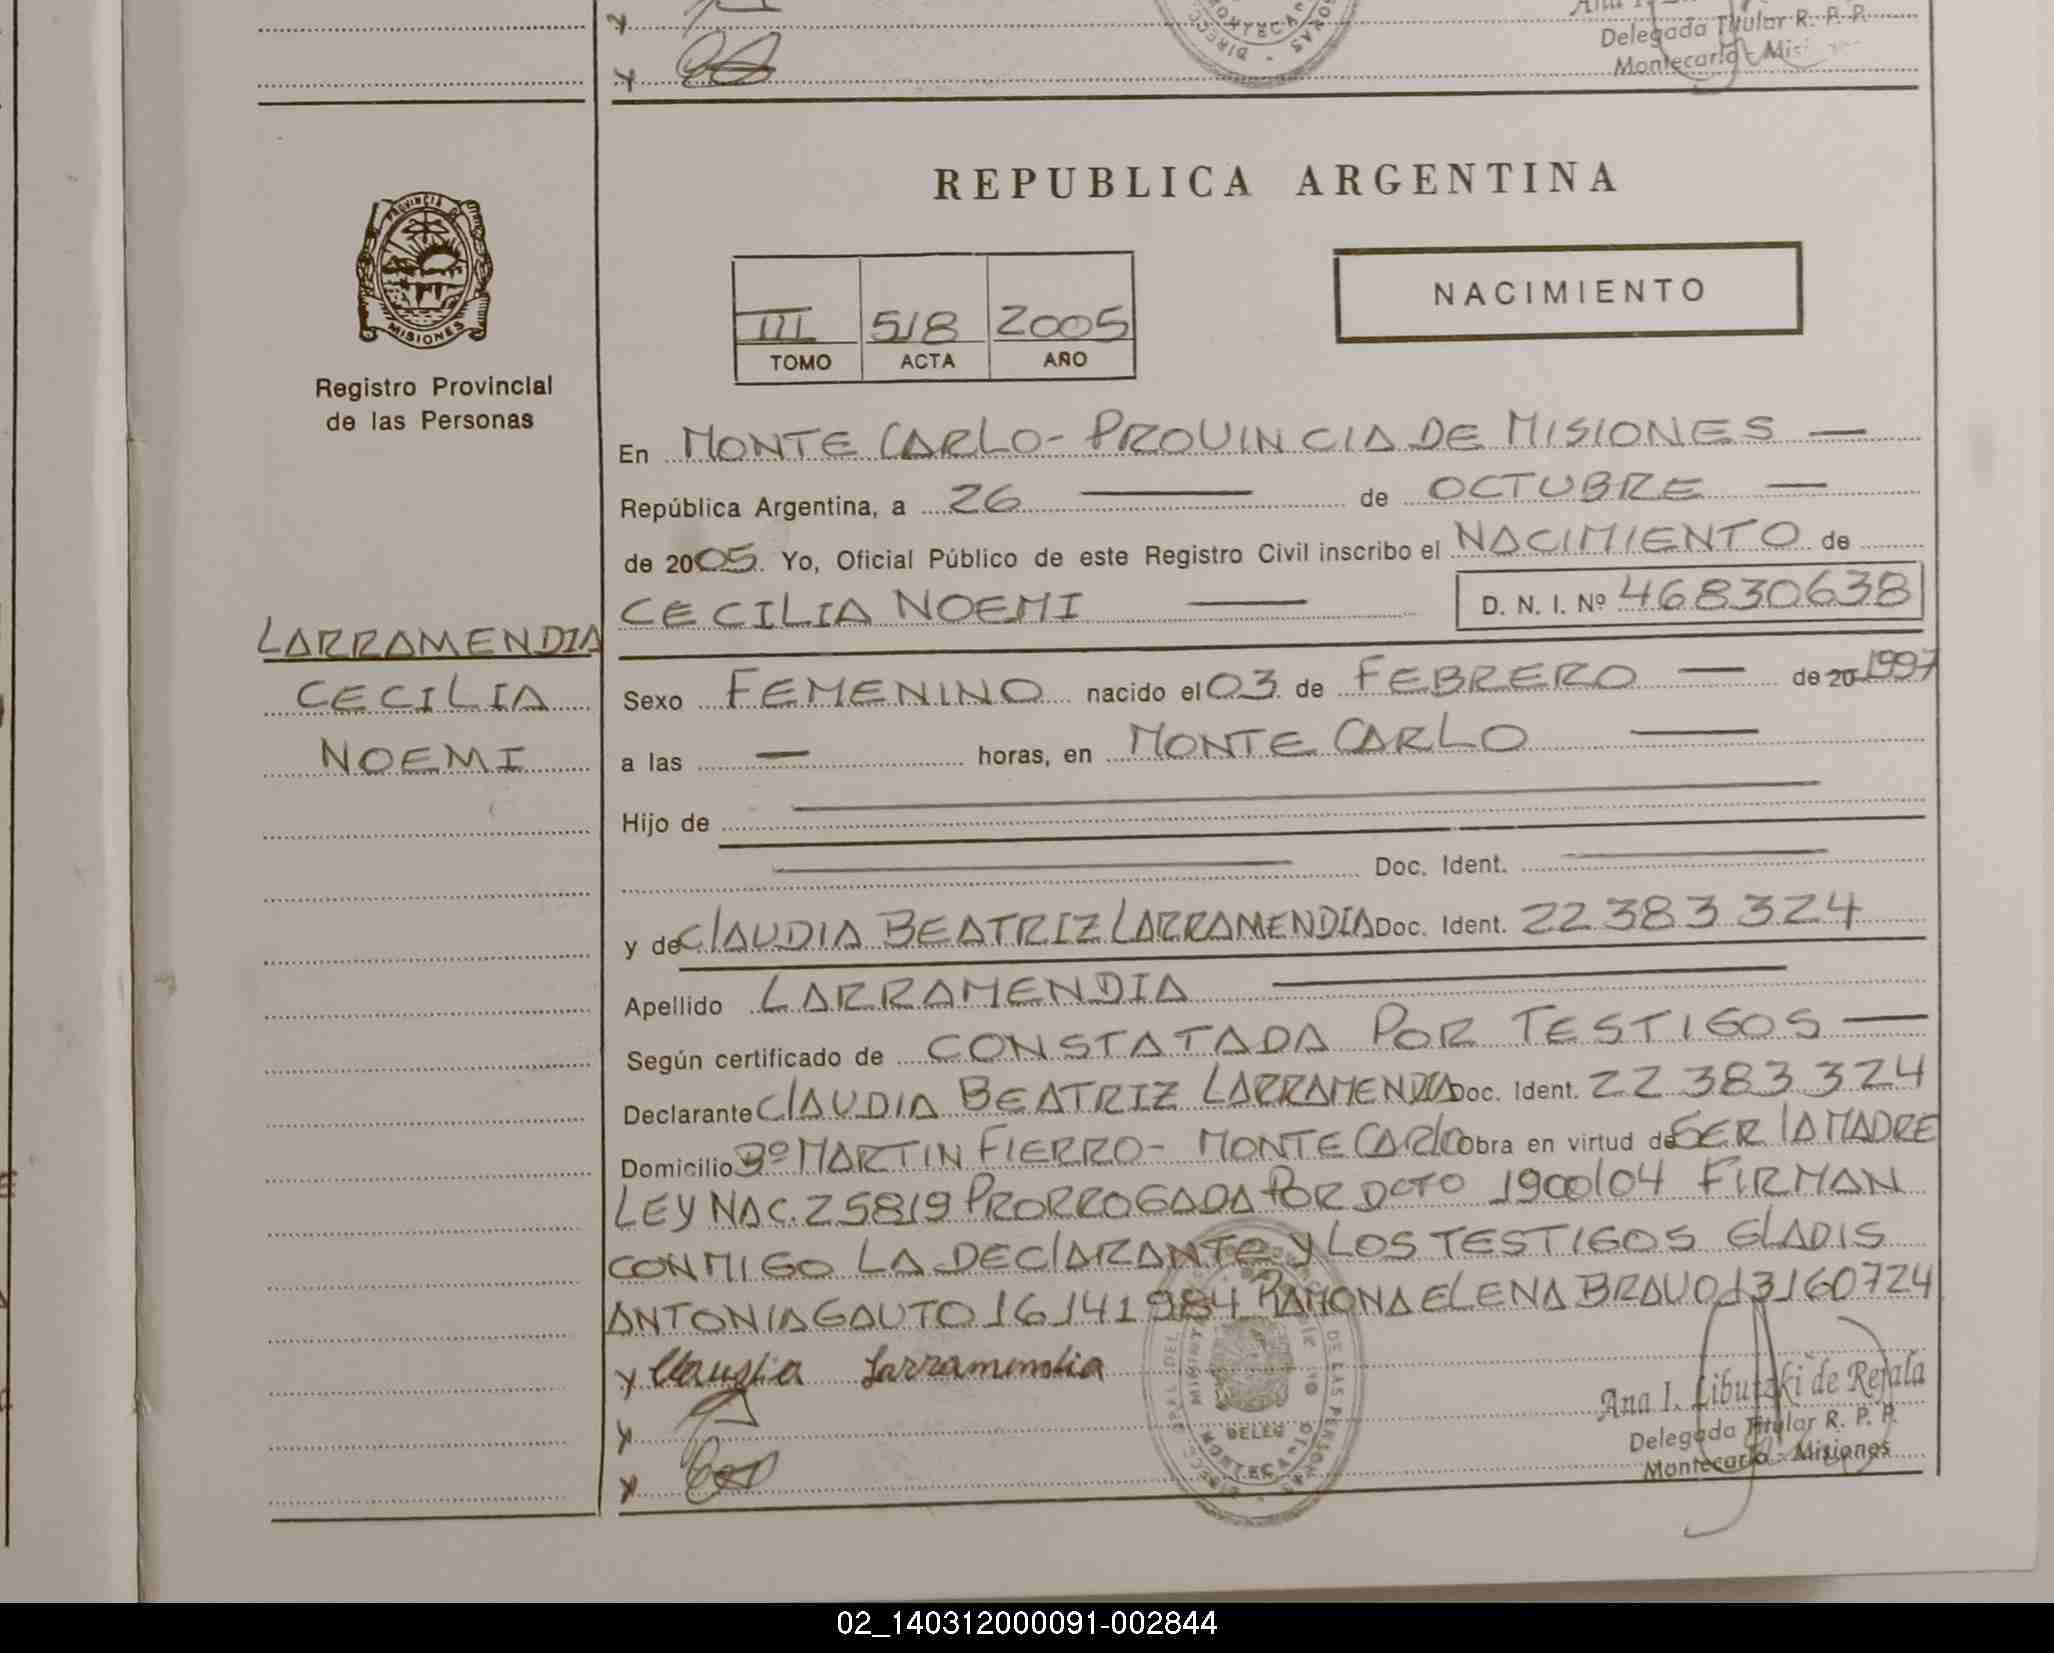 Delegada Titular R. P. P.
Montecarlo - Misiones
PROVINCIA DE
MISIONES
Registro Provincial
de las Personas
LARRAMENDIA
CECILIA
NOEMI
REPUBLICA ARGENTINA
III 518 2005
TOMO ACTA AÑO
NACIMIENTO
En MONTE CARLO - PROVINCIA DE MISIONES —
República Argentina, a 26 — de OCTUBRE —
de 2005. Yo, Oficial Público de este Registro Civil inscribo el NACIMIENTO de
CECILIA NOEMI — D. N. I. Nº 46830638
Sexo FEMENINO nacido el 03 de FEBRERO — de 20 1997
a las — horas, en MONTE CARLO —
Hijo de —
— Doc. Ident. —
y de CLAUDIA BEATRIZ LARRAMENDIA Doc. Ident. 22 383 324
Apellido LARRAMENDIA —
Según certificado de CONSTATADA POR TESTIGOS —
Declarante CLAUDIA BEATRIZ LARRAMENDIA Doc. Ident. 22 383 324
Domicilio Bº MARTIN FIERRO - MONTE CARLO Obra en virtud de SER LA MADRE
LEY NAC. 25819 PRORROGADA POR DCTO 1900/04 FIRMAN
CONMIGO LA DECLARANTE Y LOS TESTIGOS GLADIS
ANTONIA GAUTO 16141984 RAMONA ELENA BRAVO 13160724
x Claudia Larramendia
x
x
Ana I. Libutzki de Rejala
Delegada Titular R. P. P.
Montecarlo - Misiones
02_140312000091-002844